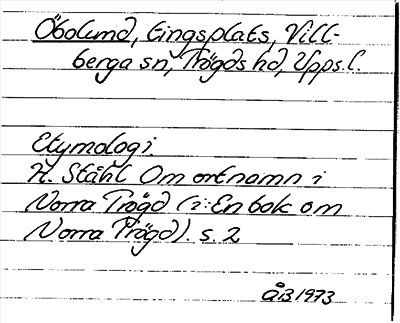 Öbolund, tingsplats, Vill-
berga sn, Trögds hd, Upps. l.
Etymologi.
H. Ståhl Om ortnamn i
Norra Trögd (i: En bok om
Norra Trögd). s. 2
ÅB 1973